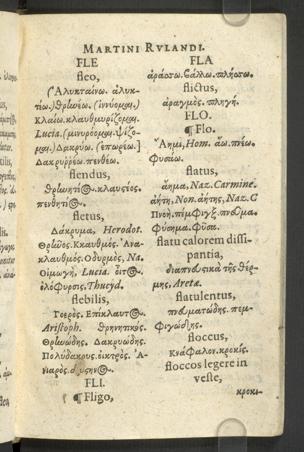 MARTINI RVLANDI.
FLE
fleo,
(Ἀλυκταίνω. ἀλυκ-
τέω.) θρωέω. (ἱννύομαι.)
Κλαίω. κλαυθμυρίζομαι.
Lucia. (μινυρόομαι. ψίζο-
μαι.) Δακρύω. (ἐπωρέω.)
Δακρυῤῥέω. πενθέω.
flendus,
θρωητέος. κλαυσέος.
πενθητέος.
fletus,
Δάκρυμα, Herodot.
Θρῶος. Κκαυθμός. Ἀνα-
κλαυθμός. Οδυρμός, Να.
Οἰμωγή, Lucia. οἶτος.
ὀλόφυρσις. Thucyd.
flebilis,
Γοερὸς. Επίκλαυτος.
Aristoph. θρηνητικός.
Θρωώδης. Δακρυώδης.
Πολύδακρυς. οἰκτρὸς. Ἀ-
νιαρὸς. δύςηνος.
FLI.
¶ Fligo,
FLA
ἀράσσω. βάλλω. πλήσσω.
flictus,
ἀραγμὸς. πληγή.
FLO.
¶ Flo.
Ἄημι, Hom. ἄω. πνέω.
Φυσάω.
flatus,
ἄημα, Naz. Carmine.
ἀήτη, Non. ἀήτης, Naz. C
Πνοή. πέμφιξ. πνεῦμα.
Φύσημα. Φῦσα.
flatu calorem dissi-
pantia,
διαπνευστικὰ τῆς θέρ-
μης, Aretæ.
flatulentus,
πνευματώδης. πεμ-
φιγώδης.
floccus,
Κνάφαλον. κροκίς.
floccos legere in
veste,
κροκι-